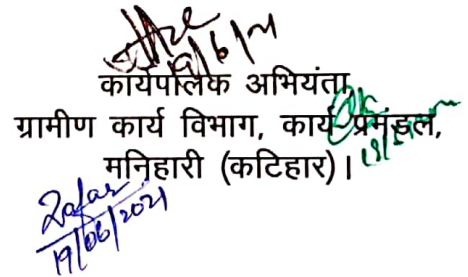 19/6/21
कार्यपालक अभियंता
ग्रामीण कार्य विभाग, कार्य प्रमंडल,
मनिहारी (कटिहार)।
Zafar
19/06/2021